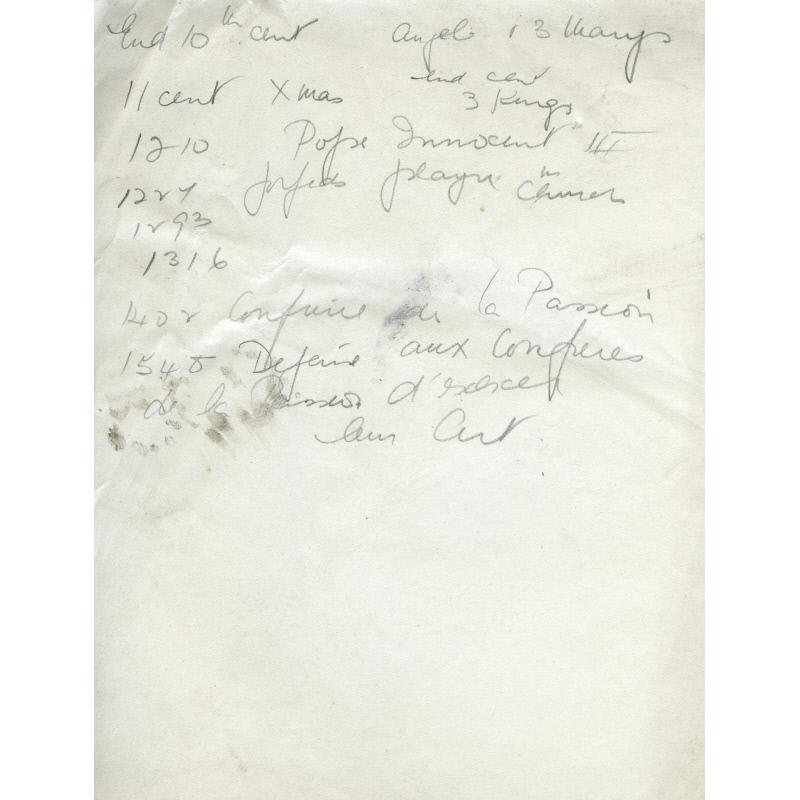 End 10th cent Angel 13 Marys
11 cent Xmas end cent 3 Kings
1210 Pope Innocent III
1227 forfeits playing in Church
1293
1316
1402 Confrerie de la Passion
1548 Defense aux Confreres
de la Passion d'exercer
leur Art